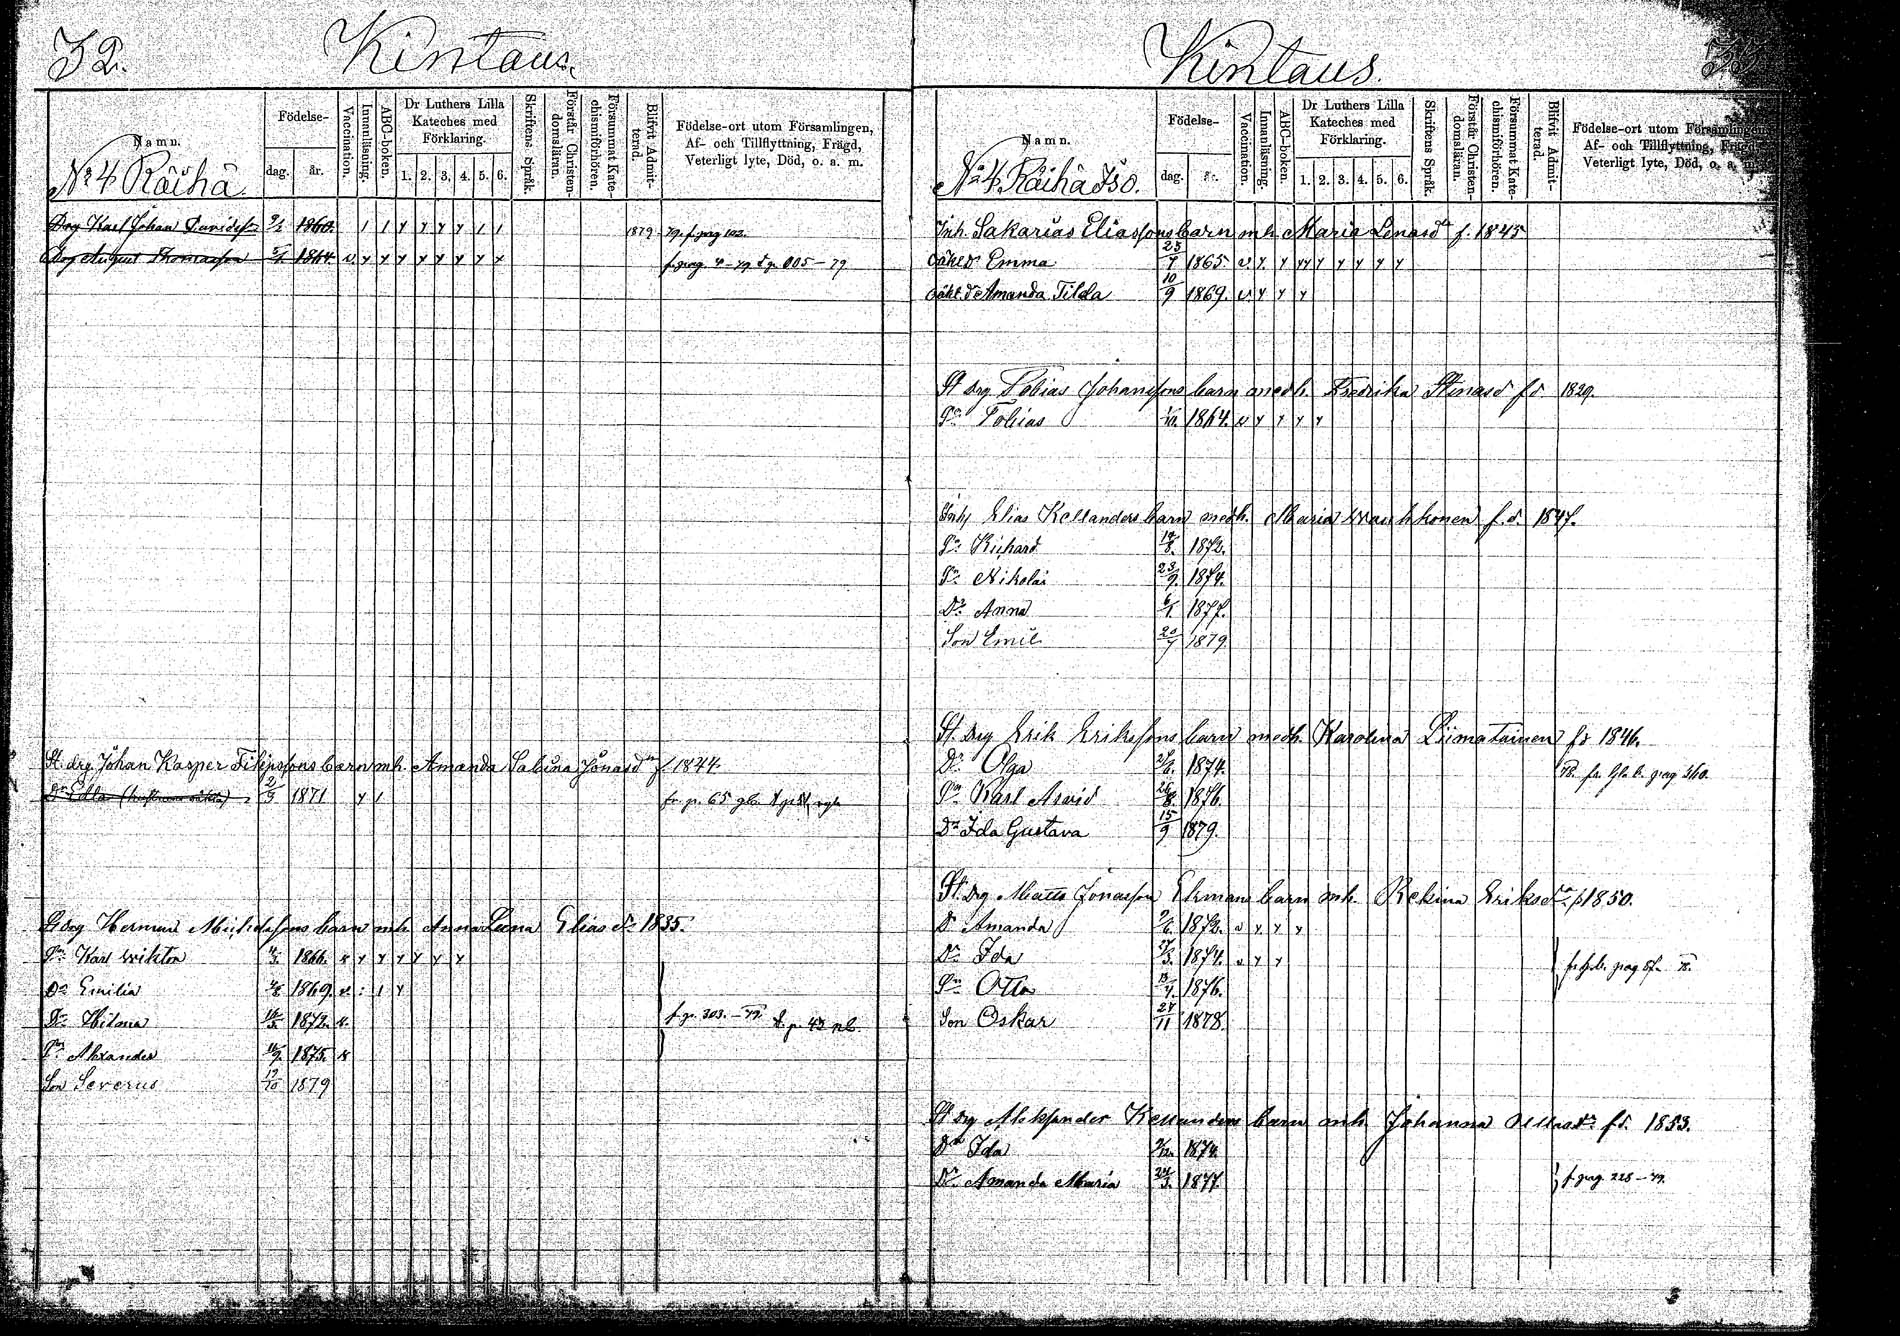 32.
Kintaus.
Namn.
Födelse-
dag.
år.
Vaccination.
Innanläsning.
ABC-boken.
Dr Luthers Lilla Kateches med Förklaring.
1. 2. 3. 4. 5. 6.
Skriftens Språk.
Förstår Christendomsläran.
Försummat Katechismiförhören.
Blifvit Admitterad.
Födelse-ort utom Församlingen,
Af- och Tillflyttning, Frägd,
Veterligt lyte, Död, o. a. m.
No 4 Räihä
Drg Karl Johan 1860. 1879
Drg August Thomasson 1864. v.
St. drg. Johan Kasper Filipssons barn mh. Amanda Sabina Jonasdr f. 1844.
Dr Edla 2/9 1871
St drg Herman Michelssons barn mh Anna Leena Elias dr 1835.
Sn Karl Wiktor 1866.
Dr Emilia 1869.
Dr Hilma 1872.
f. p. 303. – 79.
Sn Alexander 1875.
Son Severus 19/10 1879
Kintaus.
Namn.
Födelse-
dag.
år.
Vaccination.
Innanläsning.
ABC-boken.
Dr Luthers Lilla Kateches med Förklaring.
1. 2. 3. 4. 5. 6.
Skriftens Språk.
Förstår Christendomsläran.
Försummat Katechismiförhören.
Blifvit Admitterad.
Födelse-ort utom Församlingen,
Af- och Tillflyttning, Frägd,
Veterligt lyte, Död, o. a. m.
No 4. Räihä Iso.
Inh. Sakarias Eliassons barn mh. Maria Lenasdr f. 1845
oäkt dr Emma 1865. v.
oäkt. dr Amanda Tilda 10/9 1869. v
St drg Tobias Johanssons barn medh. Fredrika Stinasd f.d. 1829.
Sn Tobias 1/10. 1864. v
Inh Elias Kellanders barn medh. Maria Wauhkonen f.d. 1847.
Sn Richard 1872.
Sn Nikolai 23/9. 1874.
Dr Anna 6/1 1877.
Son Emil 20/7 1879
St. drg Erik Erikssons barn medh. Karolina Liimatainen fd 1846.
Dr Olga 1874.
Sn Karl Arvid 26/8. 1876.
Dr Ida Gustava 15/9 1879.
St. drg Matts Jonasson Ekmans barn mh. Rekina Eriksdr f. 1850.
Dr Amanda 1872. v
Dr Ida 27/3. 1874. v
Sn Otto 1876.
Son Oskar 27/11 1878.
St drg Aleksander Kellanders barn mh. Johanna fd. 1853.
Dr Ida 1874.
Dr Amanda Maria 24/3. 1877.
f. pag. 228 – 79.